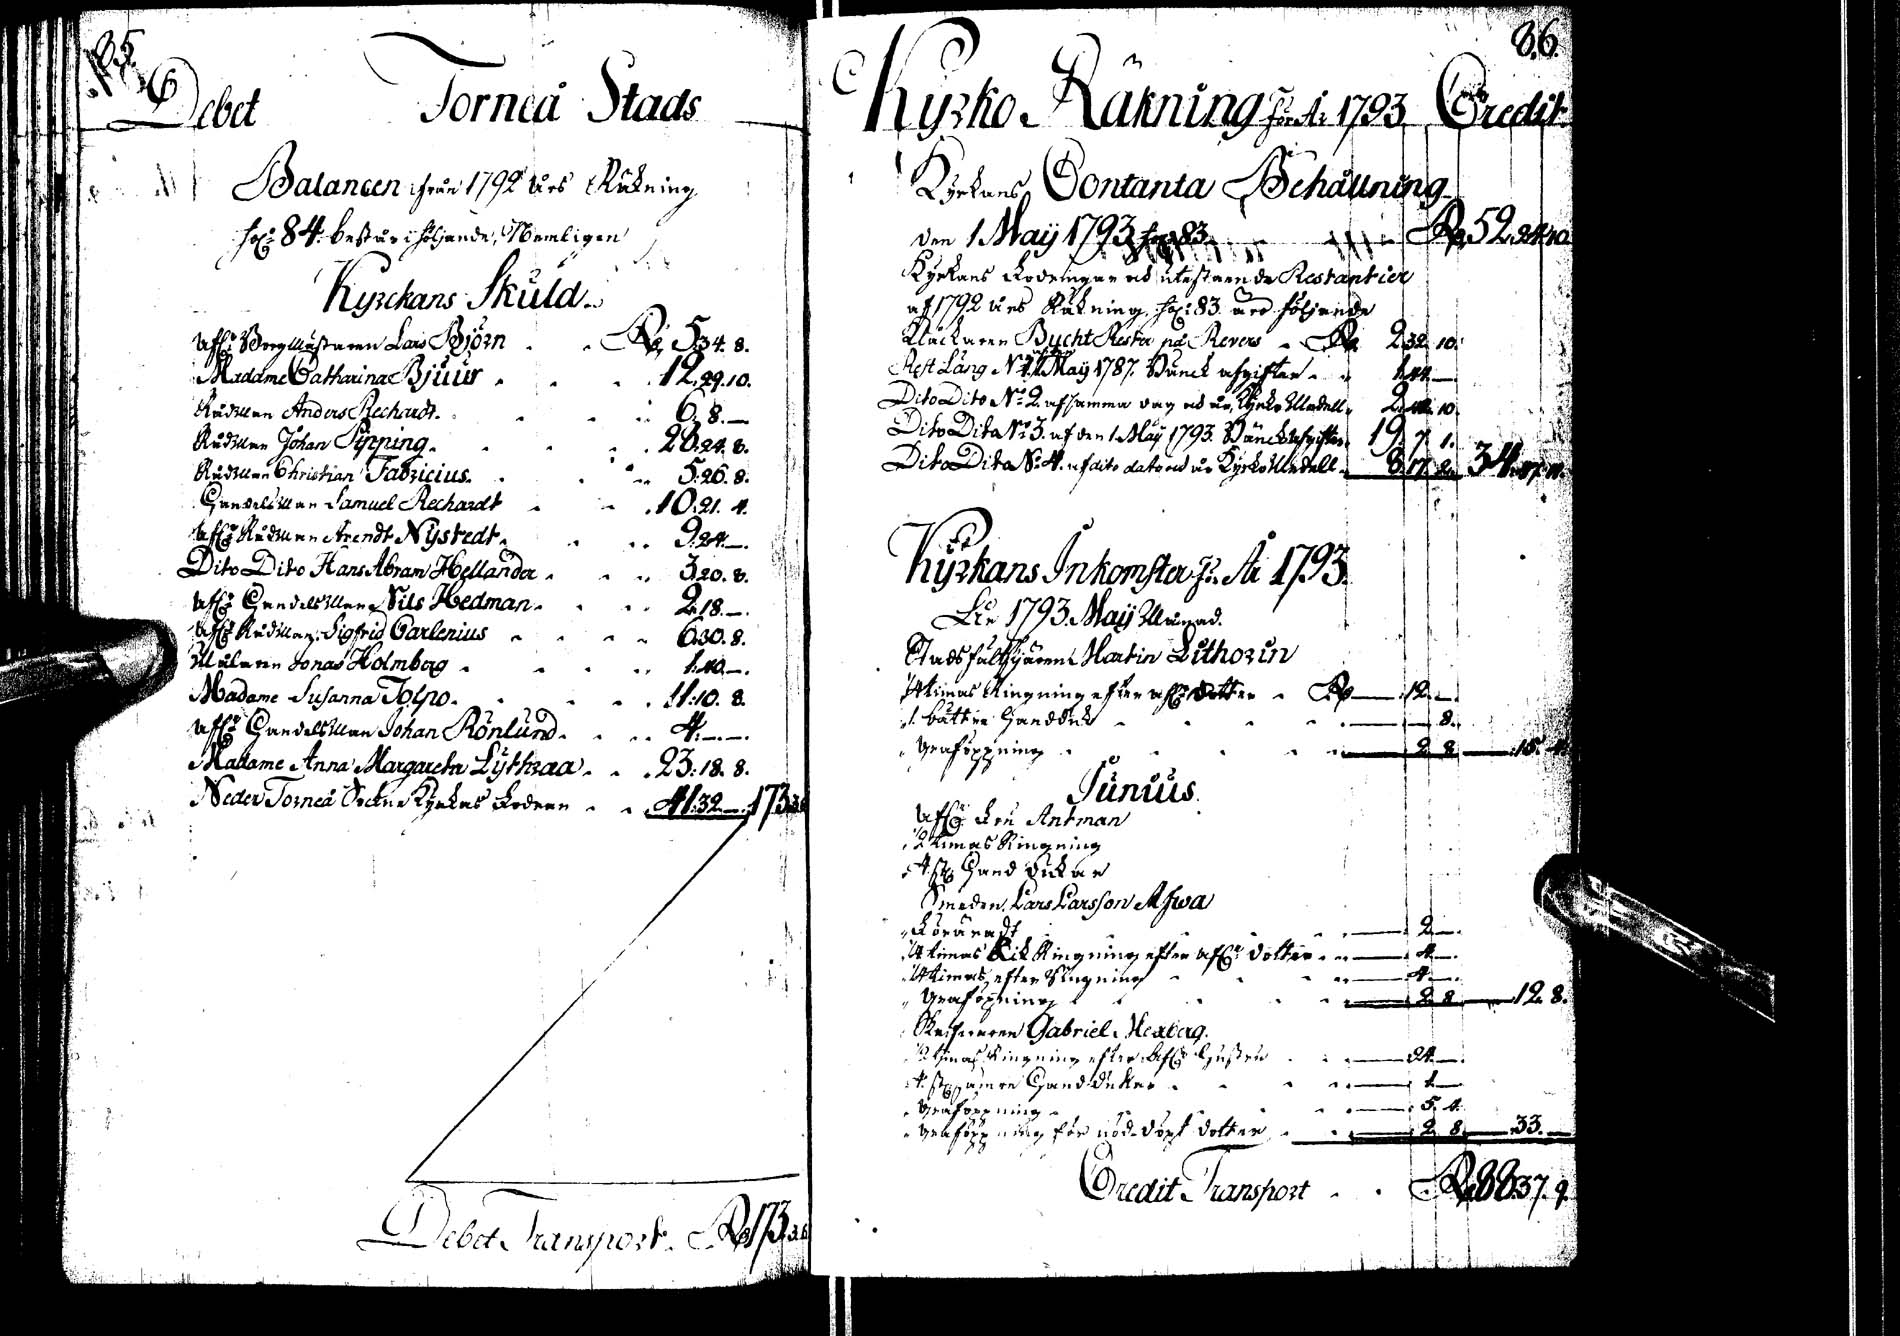 85.
Debet Torneå Stads
Balancen ifrån 1792 års Räkning
84. består i följande, Nemligen
Kyrckans Skuld.
Afl: Borgmästaren Lars Björn Rd 5.34. 8.
Madame Catharina Bjuur 12.29.10.
Rådman Anders Rechardt. 6. 8.—
Rådman Johan Pipping. 26.24. 8.
Rådman Christian Fabricius. 5.26. 8.
Handelsman Samuel Rechardt 10.21. 4.
Afl: Rådman Arendt Nystedt. 9.24.—.
Dito Dito Hans Abram Hellander 3.20. 8.
Afl: Handelsman Nils Hedman. 2.18.—.
Afl: Rådman Sigfrid Carlenius 6.30. 8.
Målaren Jonas Holmberg 1.40.—.
Madame Susanna Tolpo. 11.10. 8.
Afl: Handelsman Johan Rönlund. 4.—.—.
Madame Anna Margareta Lythraa 23.18. 8.
Neder Torneå Sockne Kyrkas fodran 41.32.— 173.
Debet Transport. Rd 173.
86.
Kyrko Räkning för År 1793 Credit
Kyrkans Contanta Behållning
den 1 Maij 1793 83. Rd 52.24.10.
Kyrkans fodringar ad utestående Restantier
af 1792 års Räkning. 83. äro följande
Klockaren Bucht Rest på Revers Rd 2.32.10.
Rest Läng N 1 Maij 1787. Bänck afgifter 1.44.—
Dito Dito No 2. af samma dag ad år Kyrko 2. 10.
Dito Dito No 3. af den 1 Maij 1793. Bänck afgifter 19. 7. 1.
Dito Dito No 4. af dito dato ad år Kyrko 8.17. 2. 34.
Kyrkans Inkomster för År 1793.
1793. Maij Månad.
Stads Martin Lithorin
Ringning efter afl: dotter Rd — 12.—
1. bättre Handduk 8.
Graföppning 2 8 15. 4.
Junius.
Afl: Fru Antman
2 timas Ringning
4 st: Handdukar
Smeden Lars Larsson Alfwa
2.—
timas Ringning efter afl: dotter 4.—
timas efter Ringning 4.—
Graföppning 2. 8. 12. 8.
Gabriel Mexberg.
timas Ringning efter afl: Hustru 24.—
4. st: Handdukar 1.—
Graföppning 5. 4.
Graföppning för nöd-döpt dotter 2 8. 33.—
Credit Transport Rd 88.37. 9.